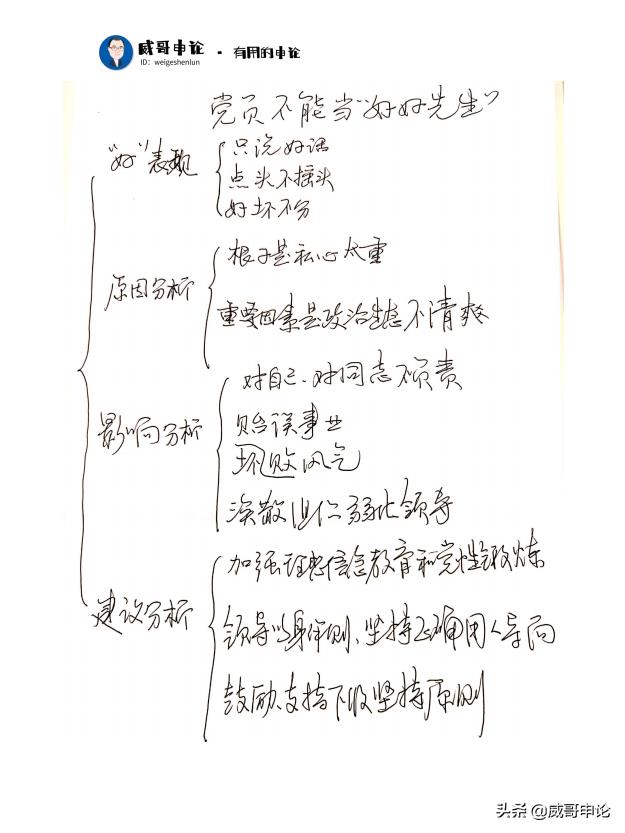 威哥申论 · 有用的申论
ID: weigeshenlun
党员不能当“好好先生”
“好”表现
只说好话
点头不摇头
好坏不分
原因分析
根子是私心太重
重要因素是政治生态不清爽
影响分析
对自己、对同志不负责
贻误事业
坏败风气
涣散 弱化领导
建议分析
加强理想信念教育和党性锻炼
领导以身作则、坚持正确用人导向
鼓励、支持下级坚持原则
头条 @威哥申论